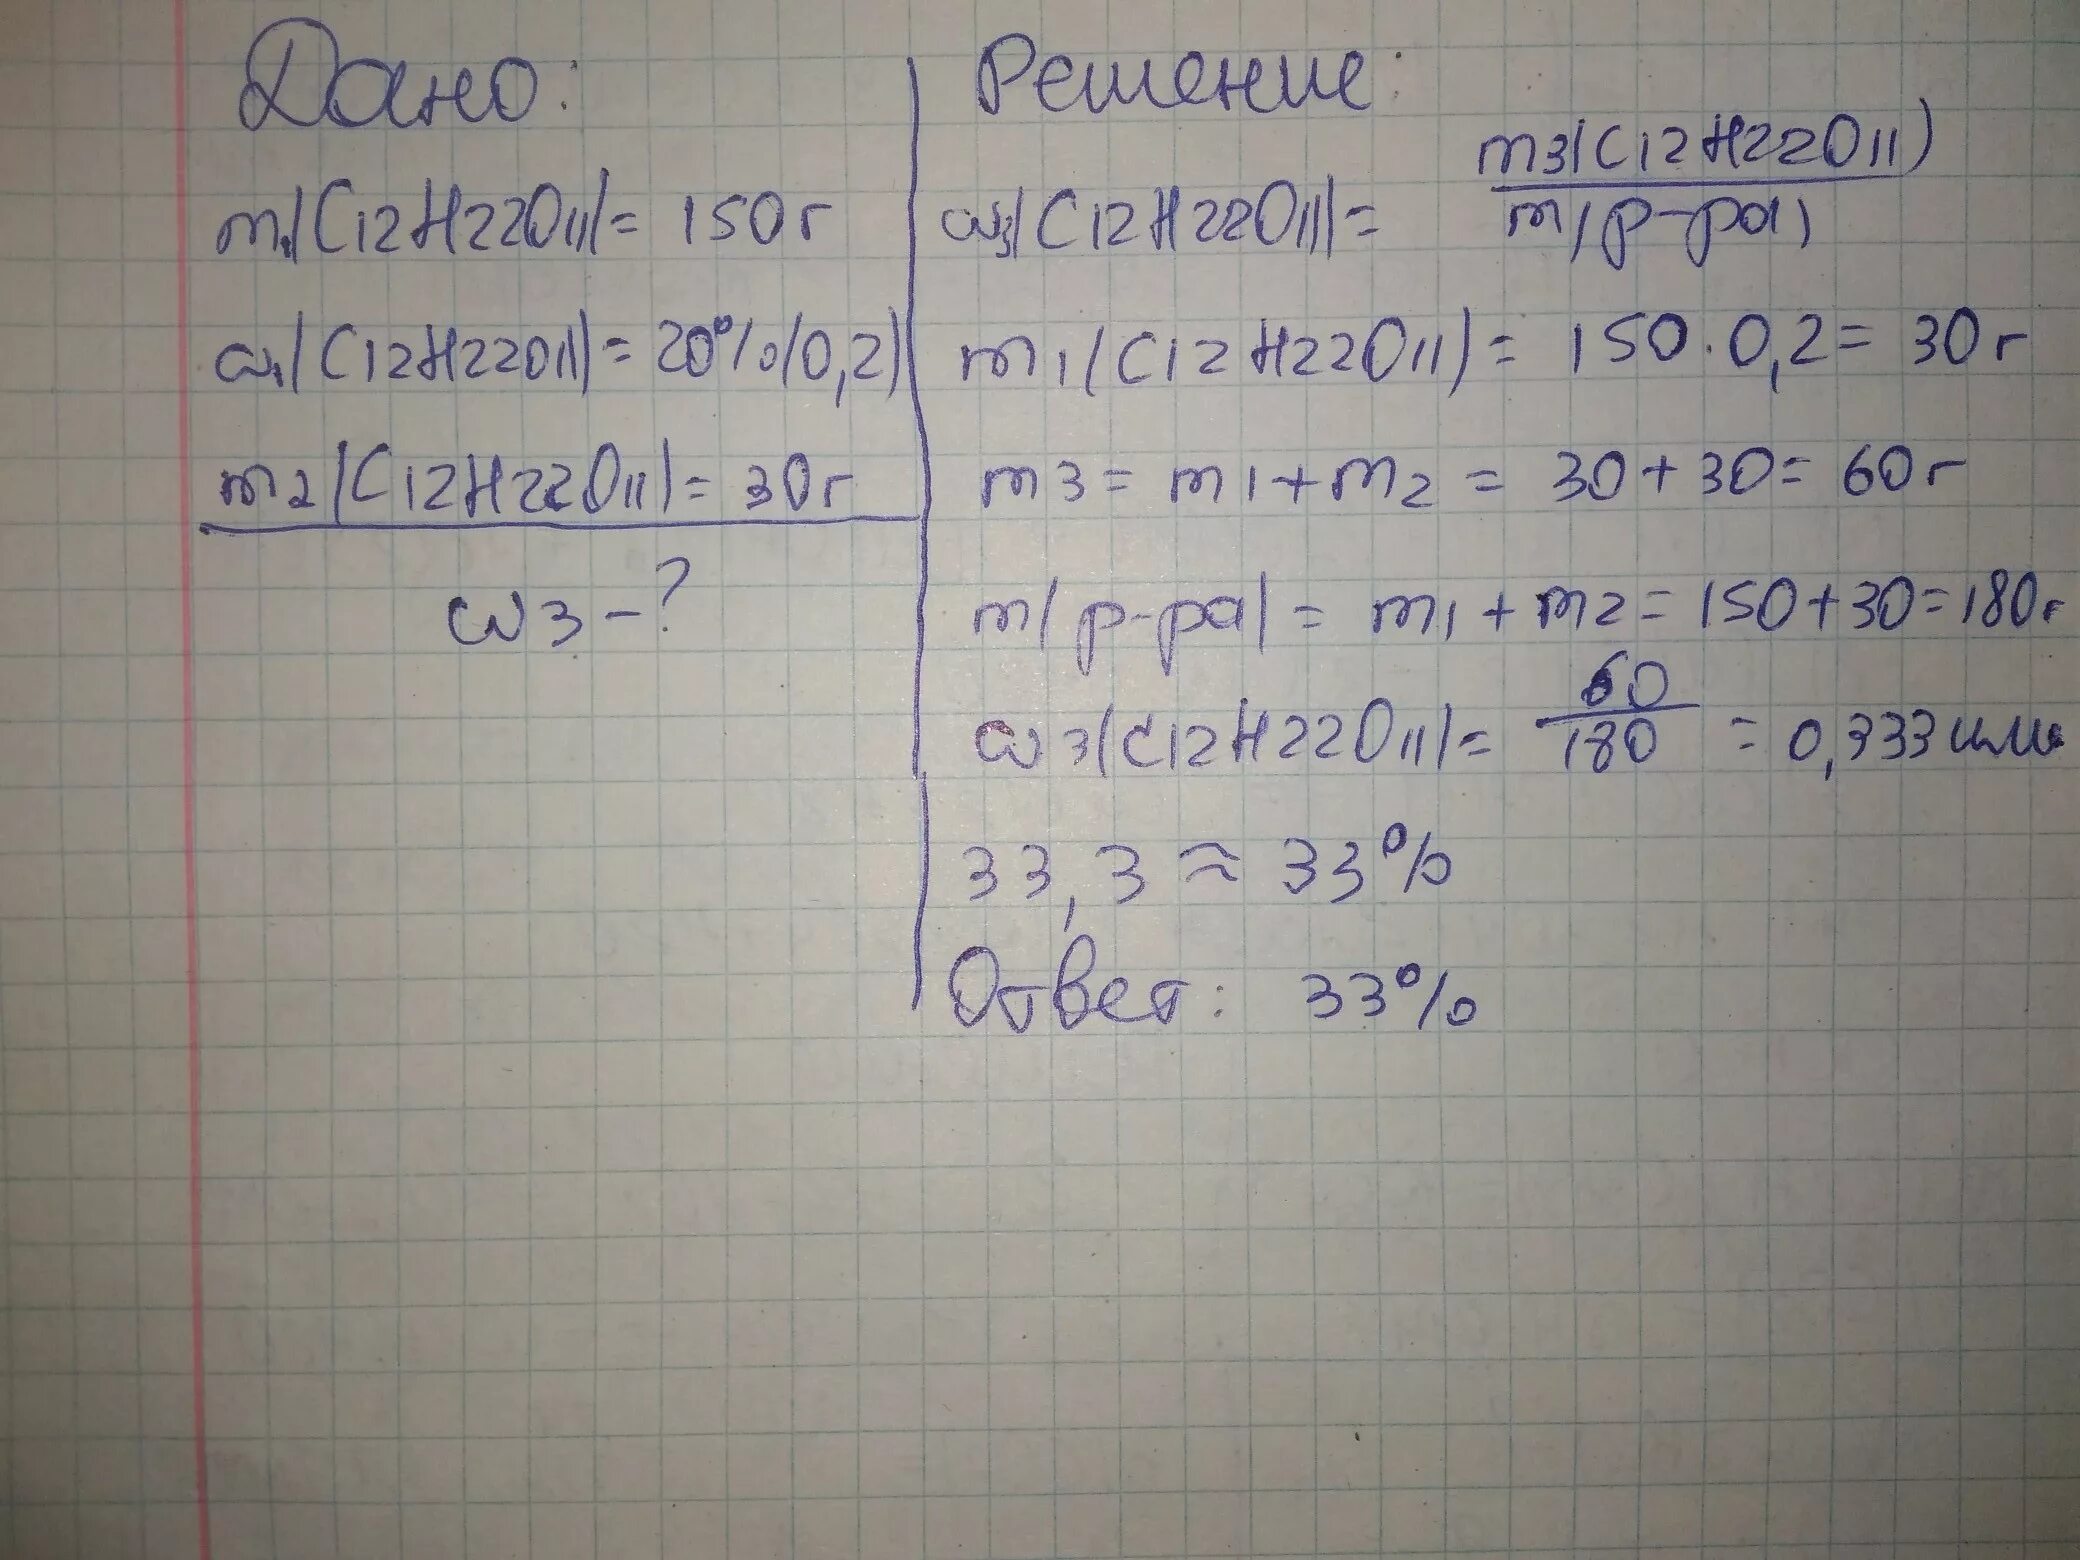 Дано:
m1(C12H22O11)= 150г
ω1(C12H22O11)= 20%(0,2)
m2(C12H22O11)= 30г
ω3-?
Решение:
ω3(C12H22O11)= m3(C12H22O11)
m(р-ра)
m1(C12H22O11)= 150·0,2= 30г
m3= m1+m2= 30+30= 60г
m(р-ра)= m1+m2= 150+30=180г
ω3(C12H22O11)= 60/180 = 0,333 или
33,3≈33%
Ответ: 33%